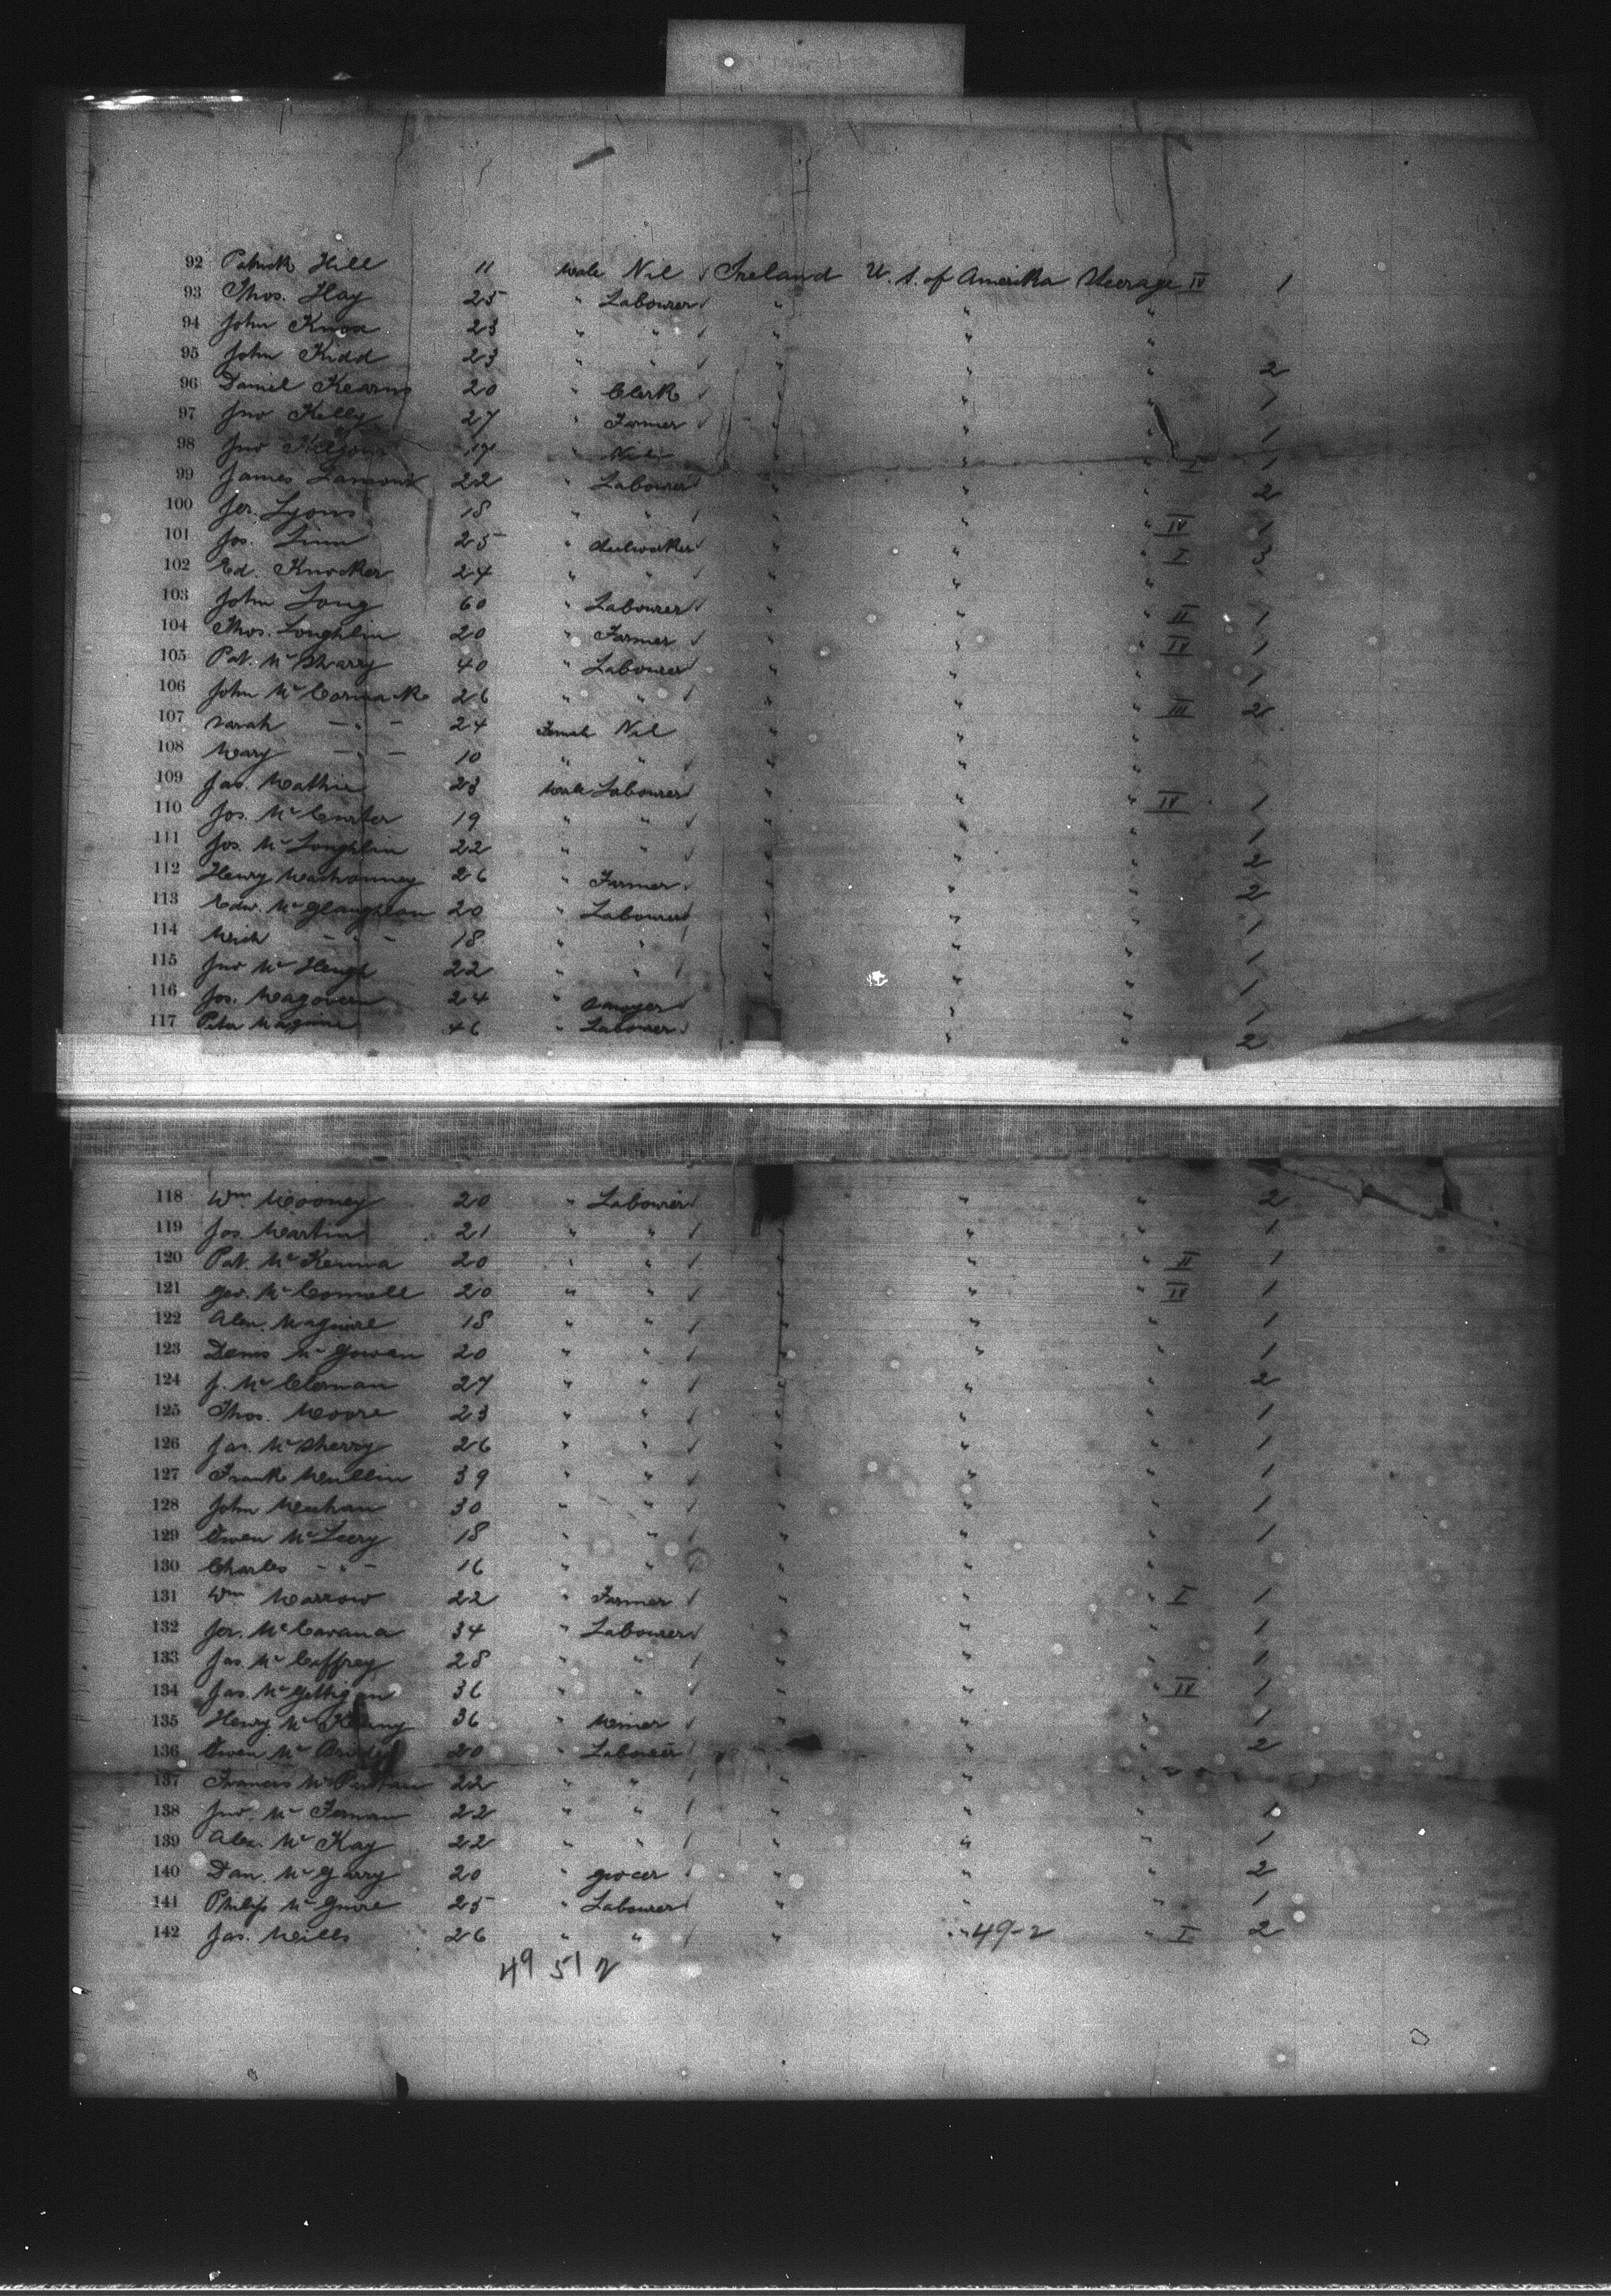 92 Patrick Hill 11 Male Nil Ireland U. S. of Amerika Steerage IV 1
93 Thos. Hay 25 " Labourer " " "
94 John Knox 23 " " " " "
95 John Kidd 23 " " " " " 2
96 Daniel Kearns 20 " Clerk " " " 1
97 Jno Kelly 27 " Farmer " " " 1
98 Jno 17 " Nil " " " I 1
99 James Lamont 22 " Labourer " " " 2
100 Jer. Lyons 18 " " " " " IV 1
101 Jos. Linn 25 " " " " I 3
102 Ed. Knocker 24 " " " " "
103 John Long 60 " Labourer " " " II 1
104 Thos. Loughlin 20 " Farmer " " " IV 1
105 Pat. McSharry 40 " Labourer " " " 1
106 John McCormack 26 " " " " " III 2
107 Sarah — " — 24 Female Nil " " "
108 Mary — " — 10 " " " " "
109 Jas. Mathie 23 Male Labourer " " " IV 1
110 Jos. 19 " " " " " 1
111 Jos. McLoughlin 22 " " " " " 2
112 Henry 26 " Farmer " " " 2
113 Edw. 20 " Labourer " " " 1
114 Mich — " — 18 " " " " " 1
115 Jno McHeugh 22 " " " " " 1
116 Jos. Magovern 24 " Sawyer " " 1
117 Peter Maguire 46 " Labourer " " 2
118 Wm Mooney 20 " Labourer " " 2
119 Jos. Martin 21 " " " " " 1
120 Pat. McKenna 20 " " " " " II 1
121 Geo. McConnell 20 " " " " " IV 1
122 Alex. Maguire 18 " " " " " 1
123 Denis McGowan 20 " " " " " 1
124 J. McClernan 27 " " " " " 2
125 Thos. Moore 23 " " " " " 1
126 Jas. McSherry 26 " " " " " 1
127 Frank Mullin 39 " " " " " 1
128 John Meehan 30 " " " " " 1
129 Owen McLeery 18 " " " " " 1
130 Charles — " — 16 " " " " "
131 Wm Marrow 22 " Farmer " " " I 1
132 Jer. McCavana 34 " Labourer " " " 1
133 Jas. McCaffrey 28 " " " " " 1
134 Jas. McGettigan 36 " " " " " IV 1
135 Henry 36 " Miner " " " 1
136 Owen 20 " Labourer " " 2
137 Francis McPartlan 22 " " " " "
138 Jno. McTernan 22 " " " " " 1
139 Alex. McKay 22 " " " " " 1
140 Dan. McGarry 20 " Grocer " " " 2
141 Philip McGuire 25 " Labourer " " " 1
142 Jas. Mills 26 " " " " 49-2 " I 2
49 51 2